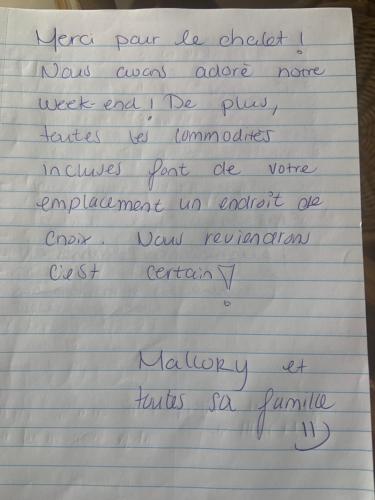 Merci pour le chalet!
Nous avons adoré notre
week-end! De plus,
toutes les commodités
incluses font de votre
emplacement un endroit de
choix. Nous reviendrons
c'est certain!
Mallory et
toutes sa famille
=)